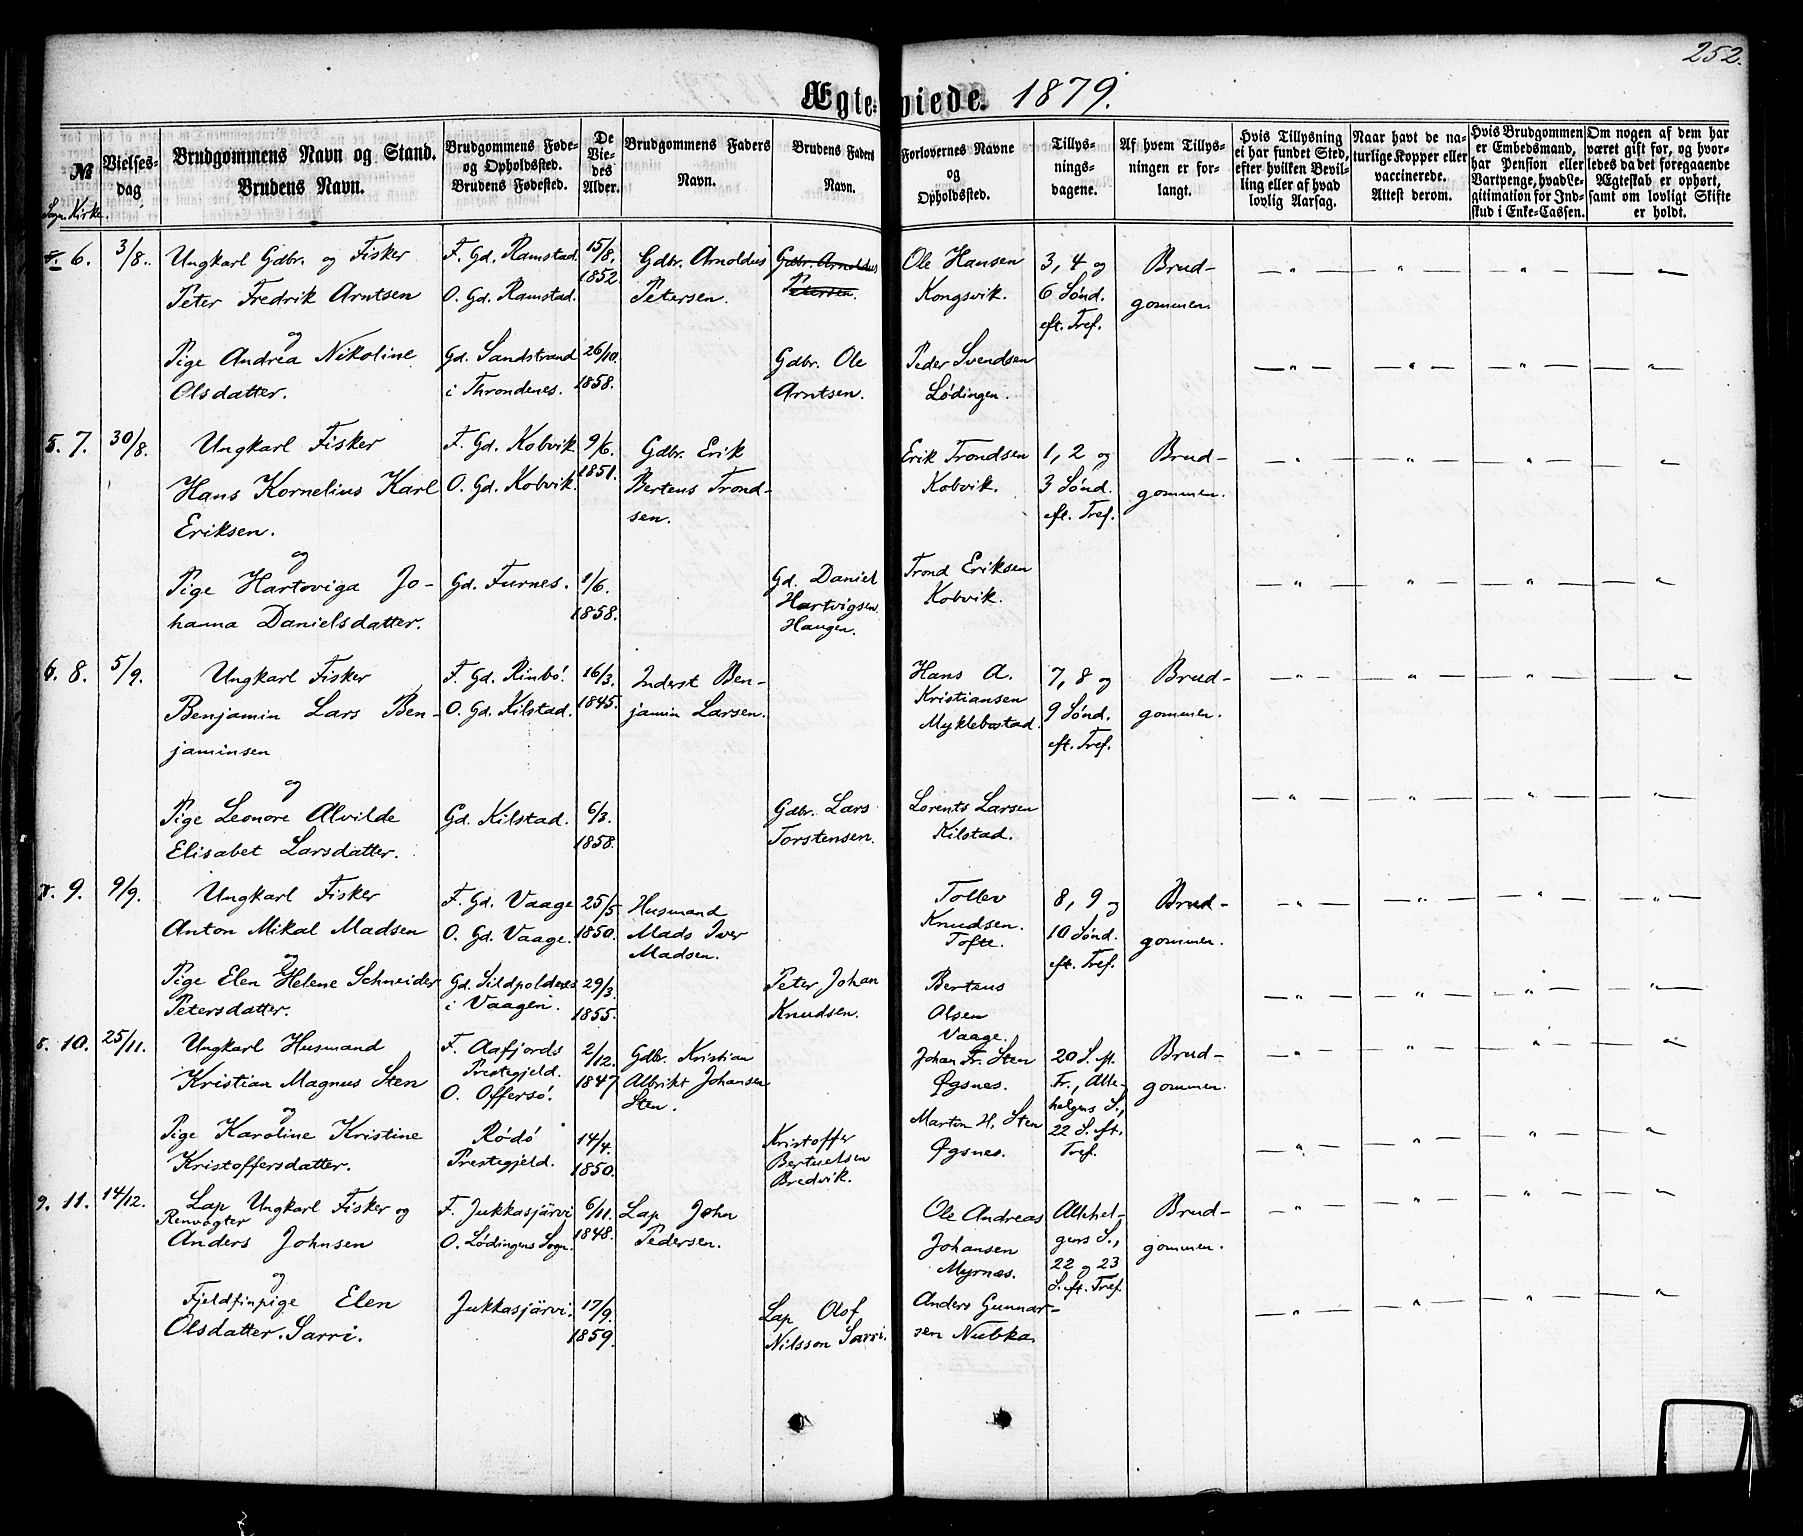 252.
Ægteviede. 1879.
№
Sogn. Kirke.
Vielses-
dag
Brudgommens Navn og Stand.
Brudens Navn.
Brudgommens Føde-
og Opholdssted.
Brudens Fødested.
De
Vie-
des
Alder.
Brudgommens Faders
Navn.
Brudens Faders
Navn.
Forlovernes Navne
og
Opholdssted.
Tillys-
nings-
dagene.
Af hvem Tillys-
ningen er for-
langt.
Hvis Tillysning
ei har fundet Sted,
efter hvilken Bevil-
ling eller af hvad
lovlig Aarsag.
Naar havt de na-
turlige Kopper eller
vaccinerede.
Attest derom.
Hvis Brudgommen
er Embedsmand,
har Pension eller
Vartpenge, hvad Le-
gitimation for Ind-
skud i Enke-Cassen.
Om nogen af dem har
været gift før, og hvor-
ledes da det foregaaende
Ægteskab er ophørt,
samt om lovligt Skifte
er holdt.
6. 3/8. Ungkarl Gdbr. og Fisker
Peter Fredrik Arntsen
og
Pige Andrea Nikoline
Olsdatter.
F. Gd. Ramstad.
O. Gd. Ramstad.
Gd. Sandstrand
i Throndenes.
15/8.
1852.
26/10.
1858.
Gdbr. Arnoldus
Petersen.
Gdbr. Arnoldus
Petersen.
Gdbr. Ole
Arntsen.
Ole Hansen
Kongsvik.
Peder Svendsen
Lødingen.
3, 4 og
6 Sønd.
eft. Tref.
Brud-
gommen.
5. 7. 30/8. Ungkarl Fisker
Hans Kornelius Karl
Eriksen.
og
Pige Hartoviga Jo-
hanna Danielsdatter.
F. Gd. Kobvik
O. Gd. Kobvik.
Gd. Furnes.
9/6.
1851.
1/6.
1858.
Gdbr. Erik
Bertens Trond-
sen.
Gd. Daniel
Hartvigsen
Haugen.
Erik Trondsen
Kobvik.
Trond Eriksen
Kobvik.
1, 2 og
3 Sønd.
eft. Tref.
Brud-
gommen.
6. 8. 5/9. Ungkarl Fisker
Benjamin Lars Ben-
jaminsen
og
Pige Leonore Alvilde
Elisabet Larsdatter.
F. Gd. Rinbø.
O. Gd. Kilstad.
Gd. Kilstad.
16/3.
1845.
6/3.
1858.
Inderst Ben-
jamin Larsen.
Gdbr. Lars
Torstensen.
Hans A.
Kristiansen
Myklebostad.
Lorents Larsen
Kilstad.
7, 8 og
9 Sønd.
eft. Tref.
Brud-
gommen.
9. 9/9. Ungkarl Fisker
Anton Mikal Madsen
og
Pige Elen Helene Schneider
Petersdatter.
F. Gd. Vaage
O. Gd. Vaage.
Gd. Sildpolderes
i Vaagen.
25/5
1850.
29/3.
1855.
Husmand
Mads Iver
Madsen.
Peter Johan
Knudsen.
Tollev
Knudsen.
Tofte.
Berteus
Olsen
Vaage.
8, 9 og
10 Sønd.
eft. Tref.
Brud-
gommen.
8. 10. 25/11. Ungkarl Husmand
Kristian Magnus Sten
og
Pige Karoline Kristine
Kristoffersdatter.
F. Aafjords
Prestegjeld.
O. Offersø.
Rødø
Prestegjeld.
2/12.
1847
14/4.
1850.
Gdbr. Kristian
Albrikt Johansen
Sten.
Kristoffer
Bertuelsen
Bredvik.
Johan Fr. Sten
Øgsnes.
Martin H. Sten
Øgsnes.
20 S. ft.
Tr., Alle-
helgens S.,
22 S. ft.
Tref.
Brud-
gommen.
9. 11. 14/12. Lap Ungkarl Fisker og
Renvogter
Anders Johnsen
og
Fjeldfinpige Elen
Olsdatter. Sarri.
F. Jukkasjärvi
O. Lødingens Sogn.
Jukkasjärvi.
6/11.
1848.
17/9.
1859.
Lap John
Pedersen.
Lap Olof
Nilsson Sarri.
Ole Andreas
Johansen
Myrnæs.
Anders Gunnar-
sen Nubka.
Allehel-
gens S.,
22 og 23
S. ft. Tref
Brud-
gommen.